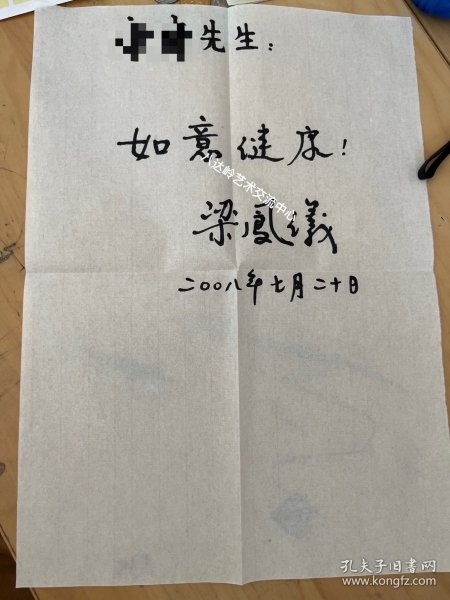 先生：
如意健康！
梁凤仪
二〇〇八年七月二十日
八达岭艺术交流中心
孔夫子旧书网
www.kongfz.com